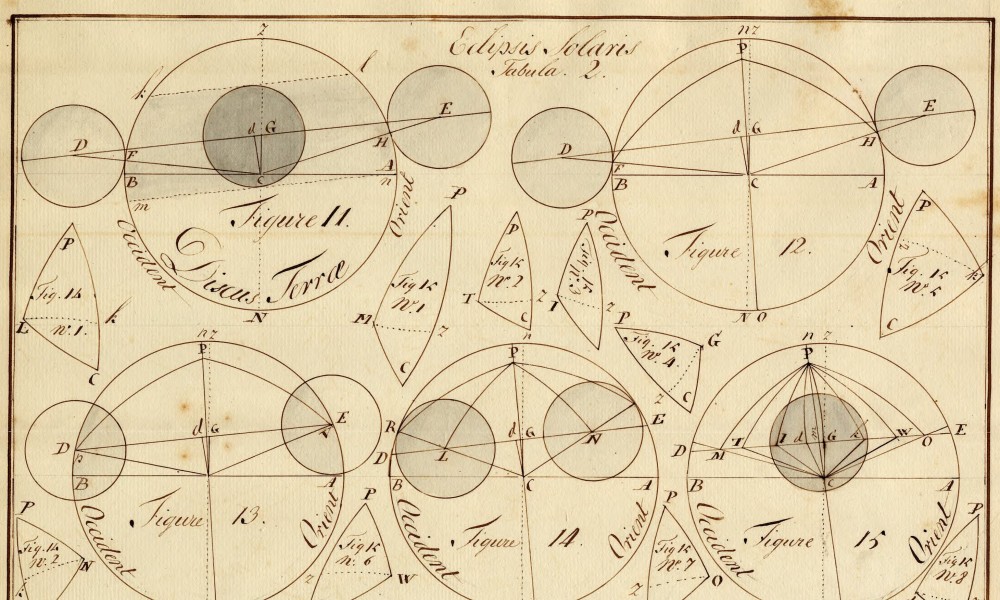 Eclipsis Solaris
Tabula. 2.
z
k
l
D
F
B
d
G
C
H
A
n
E
m
Figure 11.
Occident
Orient
Discus Terræ
N
nz
P
D
F
B
d
G
C
H
A
E
Figure 12.
Occident
Orient
N O
P
Fig. 14
N.1.
L
k
C
P
Fig 15
N.1
M
z
C
P
Fig 15
N.2
T
z
C
P
Fig 15
N.3
I
z
P
G
Fig. 15
N. 4
z
C
P
Fig. 15
N. 5
k
C
nz
P
D
B
d
G
E
A
Figure 13.
Occident
Orient
n
P
R
D
B
L
d
G
C
N
E
A
Figure 14.
Occident
Orient
n z
P
D
M
T
I
d
m
G
k
W
O
E
B
C
A
Figure 15
Occident
Orient
P
Fig. 14
N. 2
N
P
Fig 15
N. 6
z
W
P
Fig 15
N. 7
z
O
P
Fig 15
N. 8